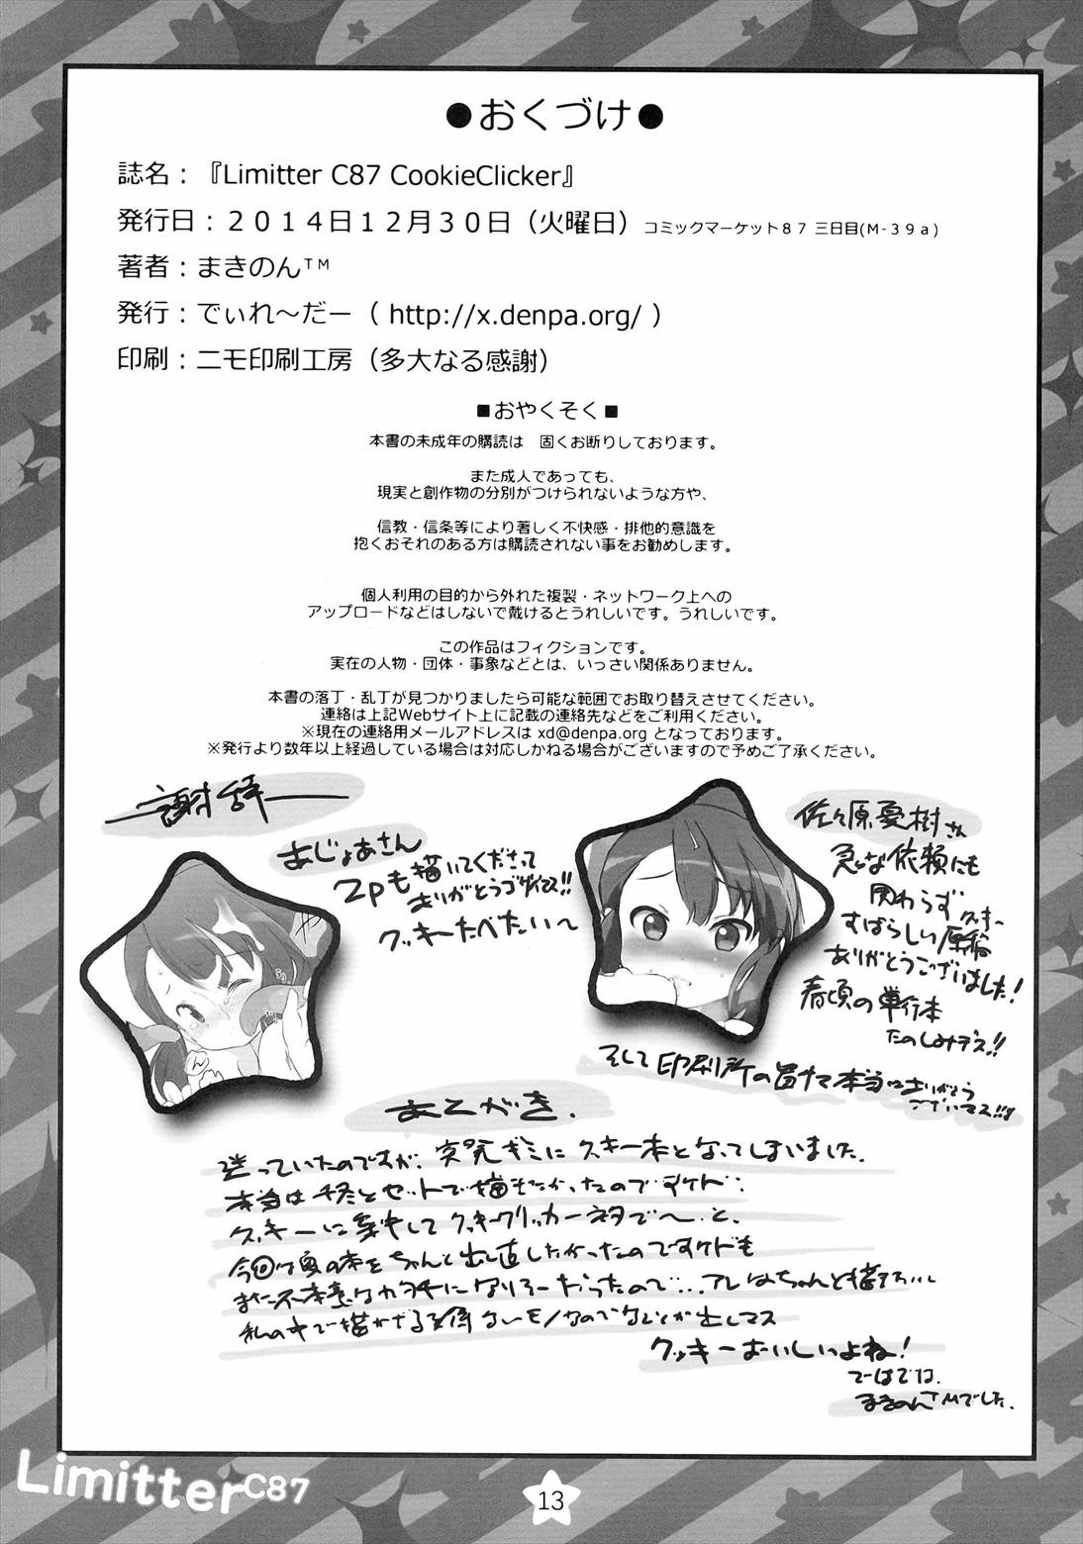 ●おくづけ●
誌名：『Limitter C87 CookieClicker』
発行日：２０１４日１２月３０日（火曜日）コミックマーケット８７ 三日目(Ｍ-３９ａ)
著者：まきのん™
発行：でぃれ～だー（ http://x.denpa.org/ ）
印刷：ニモ印刷工房（多大なる感謝）
■おやくそく■
本書の未成年の購読は　固くお断りしております。
また成人であっても、
現実と創作物の分別がつけられないような方や、
信教・信条等により著しく不快感・排他的意識を
抱くおそれのある方は購読されない事をお勧めします。
個人利用の目的から外れた複製・ネットワーク上への
アップロードなどはしないで戴けるとうれしいです。うれしいです。
この作品はフィクションです。
実在の人物・団体・事象などとは、いっさい関係ありません。
本書の落丁・乱丁が見つかりましたら可能な範囲でお取り替えさせてください。
連絡は上記Webサイト上に記載の連絡先などをご利用ください。
※現在の連絡用メールアドレスは xd@denpa.org となっております。
※発行より数年以上経過している場合は対応しかねる場合がございますので予めご了承ください。
謝辞
あじょあさん
2Pも描いてくださって
ありがとうゴザイマス!!
クッキーたべたい～
佐々原憂樹さん
急な依頼にも
関わらずクッキー
すばらしい原稿
ありがとうございました!
春頃の単行本
たのしみデス!!
そして印刷所の皆サマ本当にありがとう
ございマス!!!
あとがき.
迷っていたのですが、突発ギミにクッキー本となってしまいました.
本当は セットで描きたかったのですケド
クッキーに集中して クッキークリッカーネタで～.と.
今回は夏の本をちゃんと出し直したかったのですケドも
また不本意なカタチになりそーだったので…
私の中で描かざるを得ないモノなので
クッキーおいしいよね!
でーはでは.
まきのん™でした.
Limitter C87
13